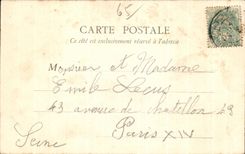 65/
CARTE POSTALE
Ce côté est exclusivement réservé à l'adresse
Monsieur et Madame
Emile
43 avenue de Chatillon 43
Paris XIV
Seine